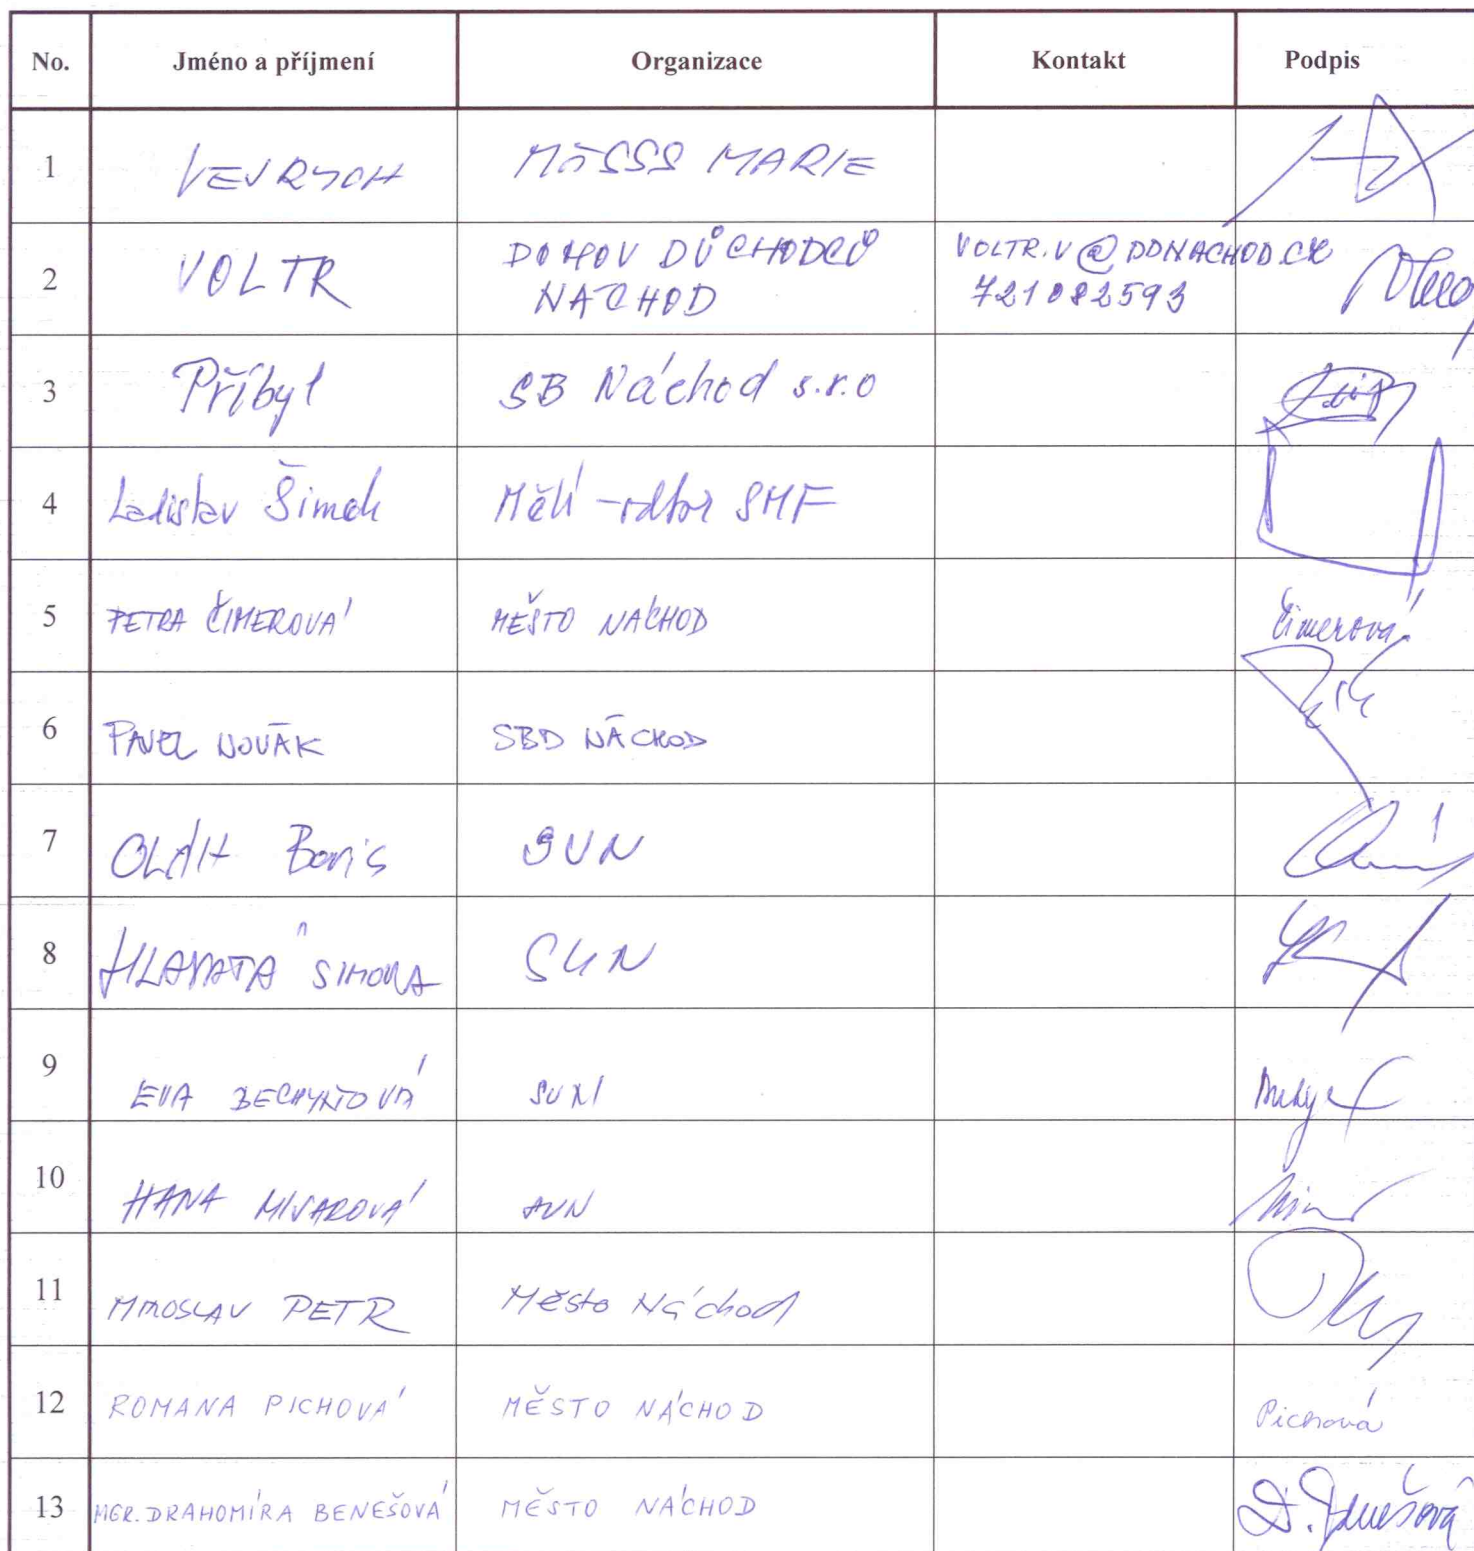 No. Jméno a příjmení Organizace Kontakt Podpis
1 VEJRYCH MěSSS MARIE
2 VOLTR DOMOV DŮCHODCŮ VOLTR.V@DDNACHOD.CZ
NÁCHOD 721082593
3 Přibyl SB Náchod s.r.o
4 Ladislav Šimek MěÚ - odbor SMF
5 PETRA ČIMEROVÁ MĚSTO NÁCHOD Čimerová
6 PAVEL NOVÁK SBD NÁCHOD
7 OLÁH Boris SUN
8 HLAVATÁ SIMONA SUN
9 EVA BECHYŇOVÁ SUN
10 HANA MISAROVÁ SUN
11 MIROSLAV PETR Město Náchod
12 ROMANA PICHOVÁ MĚSTO NÁCHOD Pichová
13 MGR. DRAHOMÍRA BENEŠOVÁ MĚSTO NÁCHOD D. Benešová